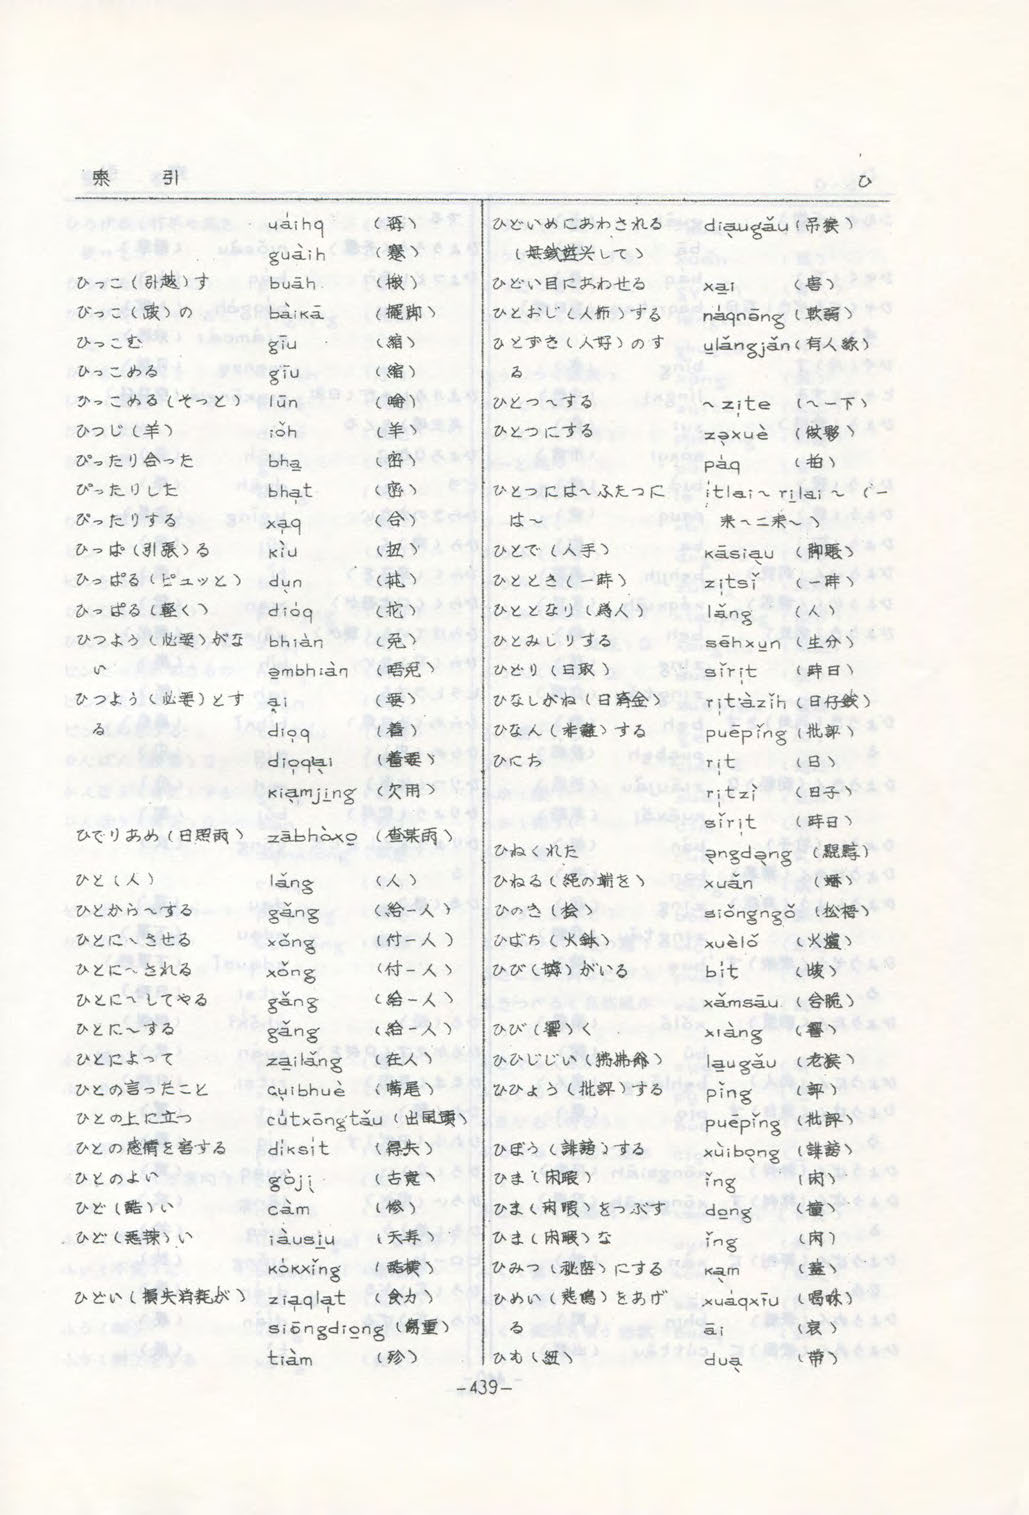 索 引 ひ
uáihq
guàih (蹇)
ひっこ(引越)す buāh (搬)
びっこ(跛)の bàikā (擺脚)
ひっこむ gīu (縮)
ひっこめる gīu (縮)
ひっこめる(そっと) lūn
ひつじ(羊) iǒh (羊)
ぴったり合った bha̱ (密)
ぴったりした bha̱t (密)
ぴったりする xa̩q (合)
ひっぱ(引張)る kìu (扭)
ひっぱる(ピュッと) du̩n
ひっぱる(軽く) dióq
ひつよう(必要)がな bhiàn (免)
い əmbhiàn (唔免)
ひつよう(必要)とす a̩i (要)
る dio̩q (着)
dio̩qa̩i (着要)
kia̩mji̱ng (欠用)
ひでりあめ(日照雨) zābhòxo̱ (查某雨)
ひと(人) lǎng (人)
ひとから~する gǎng (給一人)
ひとに~させる xǒng (付一人)
ひとに~される xǒng (付一人)
ひとに~してやる gǎng (給一人)
ひとに~する gǎng (給一人)
ひとによって za̱ilǎng (在人)
ひとの言ったこと cu̩ibhuè (嘴尾)
ひとの上に立つ cu̍txōngtǎu (出風頭)
ひとの感情を害する di̍ksi̍t (得失)
ひとのよい gòji̩ (古意)
ひど(酷)い càm (惨)
ひど(悪辣)い iàusi̱u (夭寿)
ko̍kxǐng (酷横)
ひどい(損失消耗が) zia̩qla̩t (食力)
siōngdio̱ng (傷重)
tiàm (殄)
ひどいめにあわされる dia̩ugǎu (吊猴)
して)
ひどい目にあわせる xa̱i (害)
ひとおじ(人怖)する náqnōng (軟弱)
ひとずき(人好)のす u̱lǎngjǎn (有人緣)
る
ひとつ~する ~zi̩te (~一下)
ひとつにする zə̩xuè (做夥)
páq (拍)
ひとつには~ふたつに i̍tlai~ri̱lai~ (一
は~ 来~二来~)
ひとで(人手) kāsia̱u (脚賬)
ひととき(一時) zi̩tsǐ (一時)
ひととなり(為人) lǎng (人)
ひとみしりする sēhxu̱n (生分)
ひどり(日取) sǐri̩t (時日)
ひなしがね(日済金) ri̩tàzǐh (日仔錢)
ひなん(非難)する puēpǐng (批評)
ひにち ri̩t (日)
ri̩tzì (日子)
sǐri̩t (時日)
ひねくれた ə̱ngdə̱ng
ひねる(縄の端を) xuǎn
ひのき(桧) siǒngngǒ (松梧)
ひばち(火鉢) xuèlǒ (火爐)
ひび(罅)がいる bi̍t
xǎmsāu
ひび(響)く xiàng (響)
ひひじじい(狒狒爺) la̱ugǎu (老猴)
ひひょう(批評)する pǐng (評)
puēpǐng (批評)
ひぼう(誹謗)する xùibo̱ng (誹謗)
ひま(閑暇) ǐng (闲)
ひま(閑暇)をつぶす do̱ng (撞)
ひま(閑暇)な ǐng (闲)
ひみつ(秘密)にする ka̩m (蓋)
ひめい(悲鳴)をあげ xuáqxīu (喝咻)
る āi (哀)
ひも(紐) dua̩ (帶)
-439-